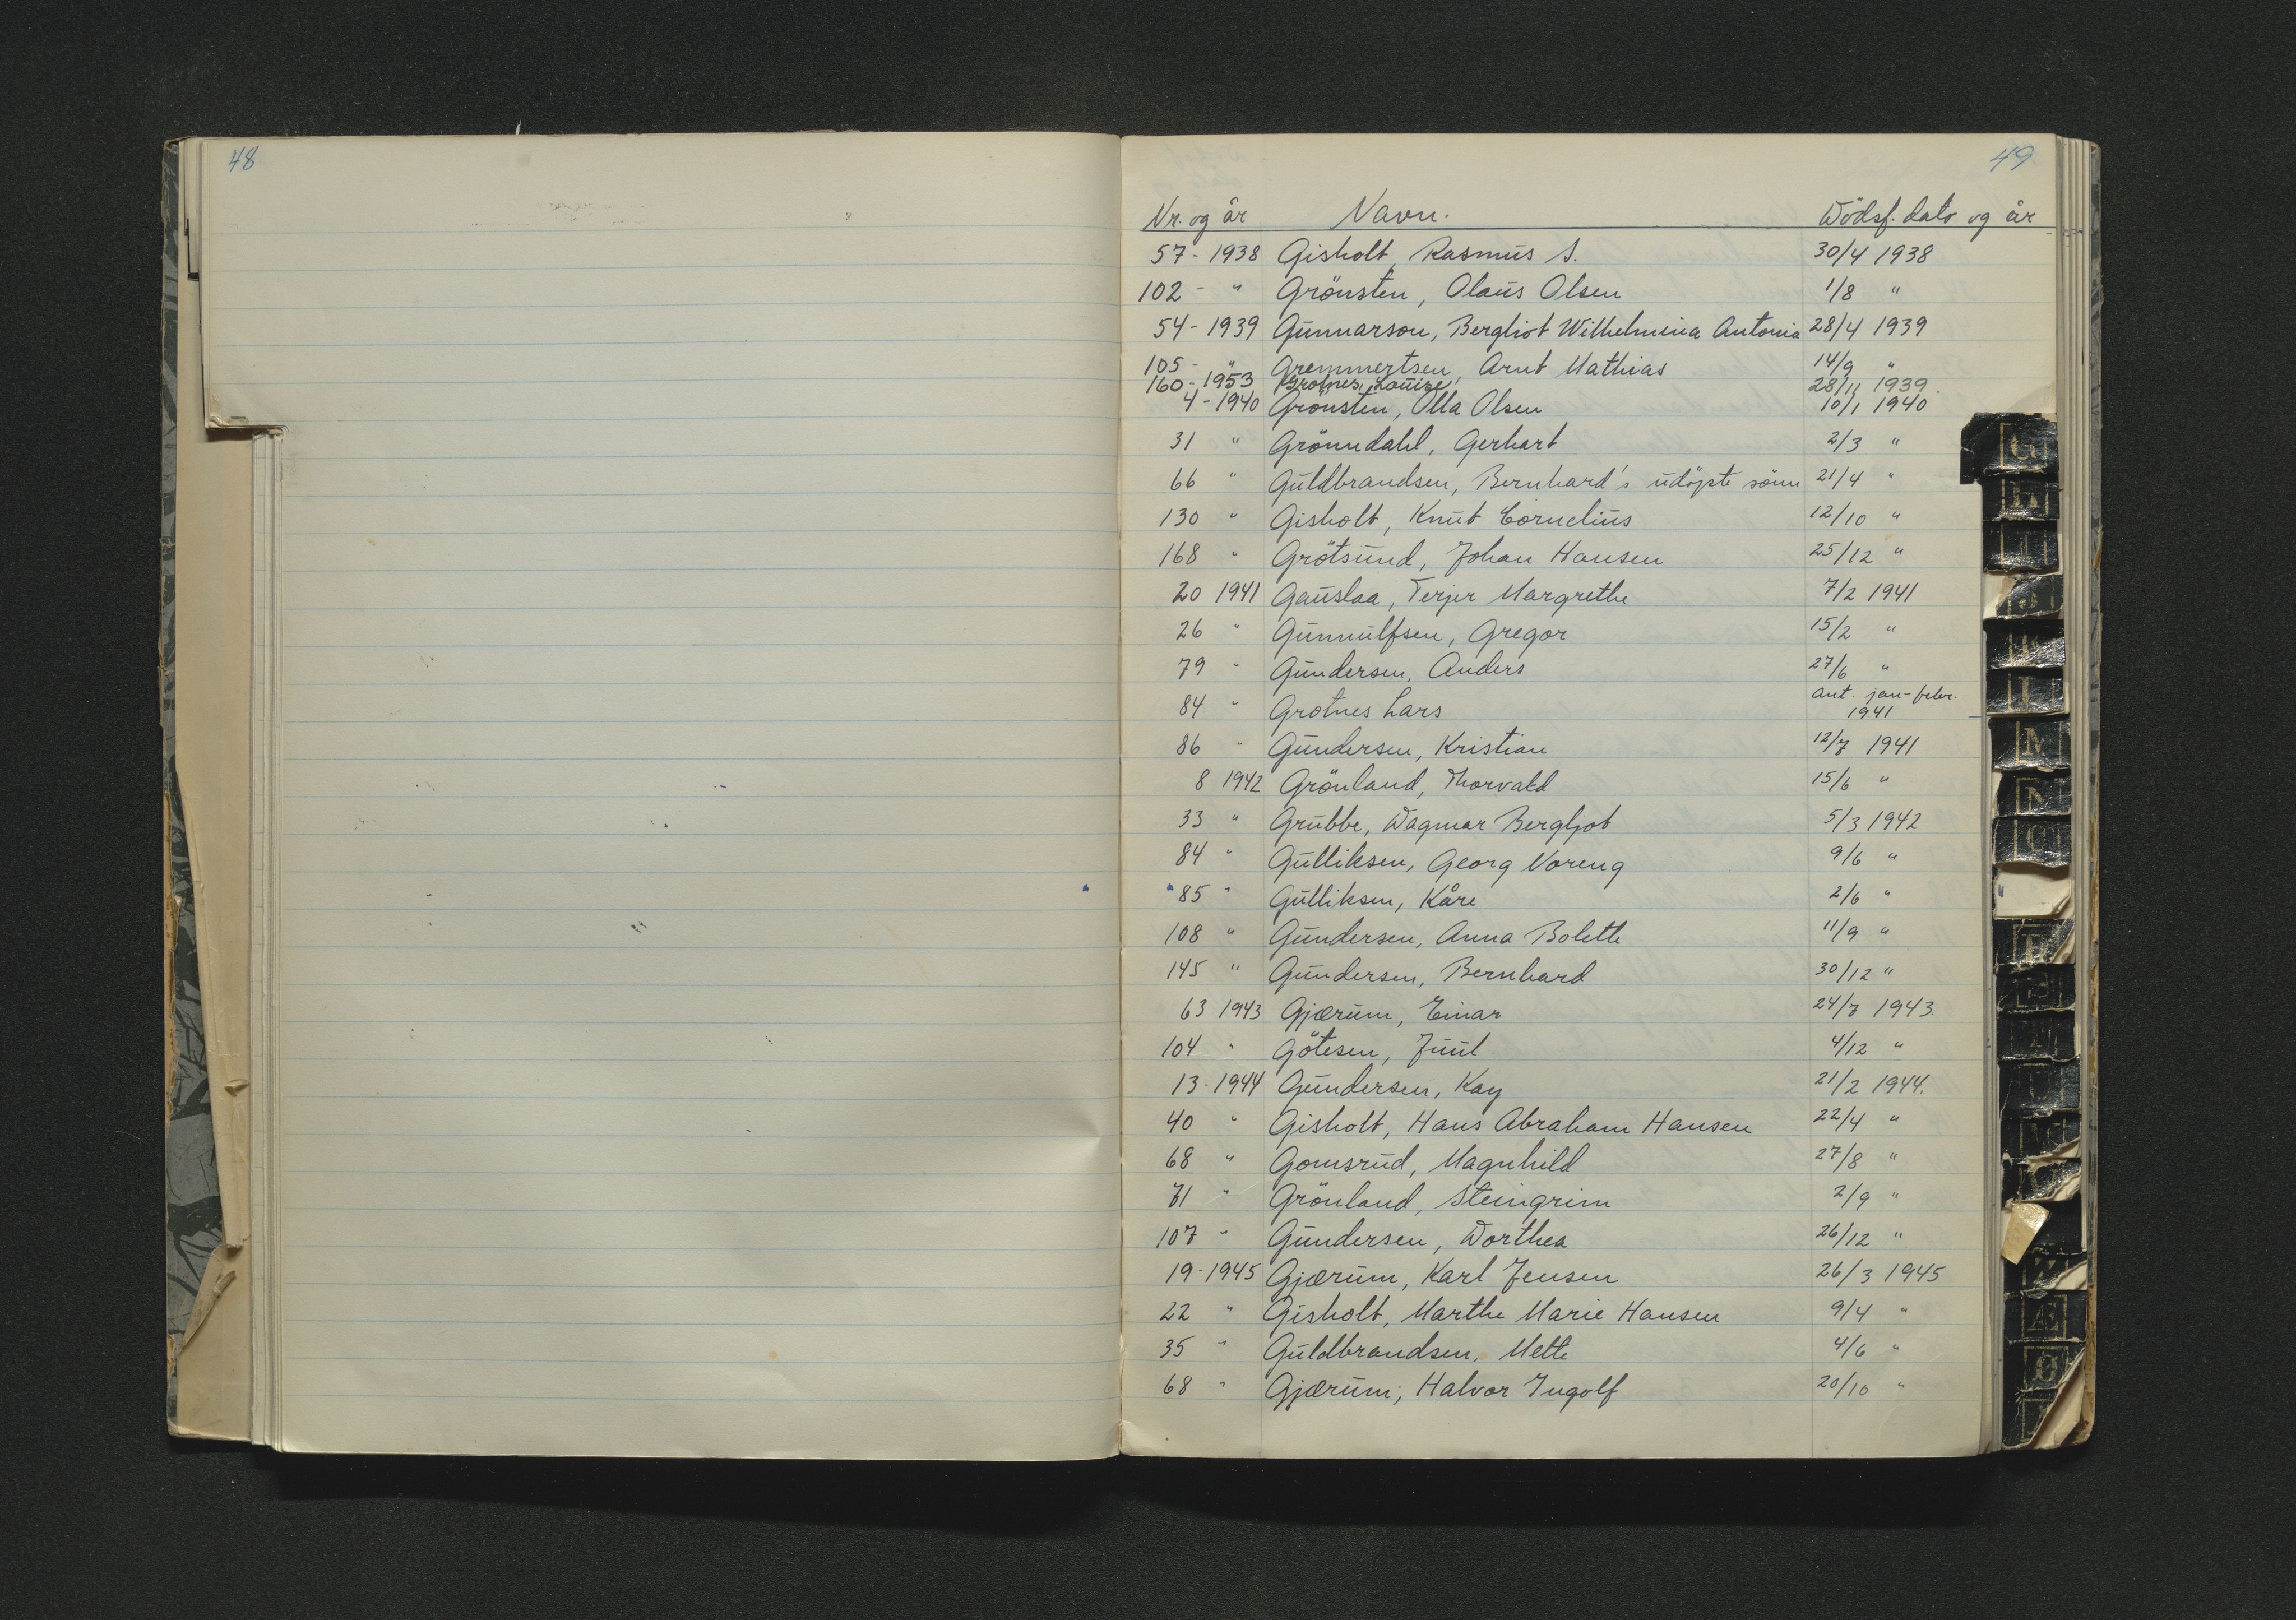 48
49
Nr. og år Navn. Dödsf. dato og år
57 - 1938 Gisholt, Rasmus S. 30/4 1938
102 - " Grönsten, Olaus Olsen 1/8 "
54 - 1939 Gunnarson, Bergliot Wilhelmina Antonia 28/4 1939
105 - " Gremmertsen, Arnt Mathias 14/9 "
160 - 1953 Grotnes, Louise 28/11 1939
4 - 1940 Grönsten, Olla Olsen 10/1 1940
31 " Grönndahl, Gerhart 2/3 "
66 " Guldbrandsen, Bernhard's udöpte sönn 21/4 "
130 " Gisholt, Knut Cornelius 12/10 "
168 " Grötsund, Johan Hansen 25/12 "
20 1941 Gauslaa, Terjer Margrethe 7/2 1941
26 " Gunnulfsen, Gregor 15/2 "
79 " Gundersen, Anders 27/6 "
84 " Grotnes Lars ant. jan-febr.
1941
86 " Gundersen, Kristian 12/7 1941
8 1942 Grönland, Thorvald 15/6 "
33 " Grubbe, Dagmar Bergljot 5/3 1942
84 " Gulliksen, Georg Noreng 9/6 "
85 " Gulliksen, Kåre 2/6 "
108 " Gundersen, Anna Bolette 11/9 "
145 " Gundersen, Bernhard 30/12 "
63 1943 Gjærum, Einar 24/7 1943
104 " Götesen, Juul 4/12 "
13 - 1944 Gundersen, Kay 21/2 1944.
40 " Gisholt, Hans Abraham Hansen 22/4 "
68 " Gomsrud, Magnhild 27/8 "
71 " Grönland, Steingrim 2/9 "
107 " Gundersen, Dorthea 26/12 "
19 - 1945 Gjærum, Karl Jensen 26/3 1945
22 " Gisholt, Marthe Marie Hansen 9/4 "
35 " Guldbrandsen, Mette 4/6 "
68 " Gjærum, Halvor Ingolf 20/10 "
G
H
I
J
L
M
N
O
P
Æ
Ø